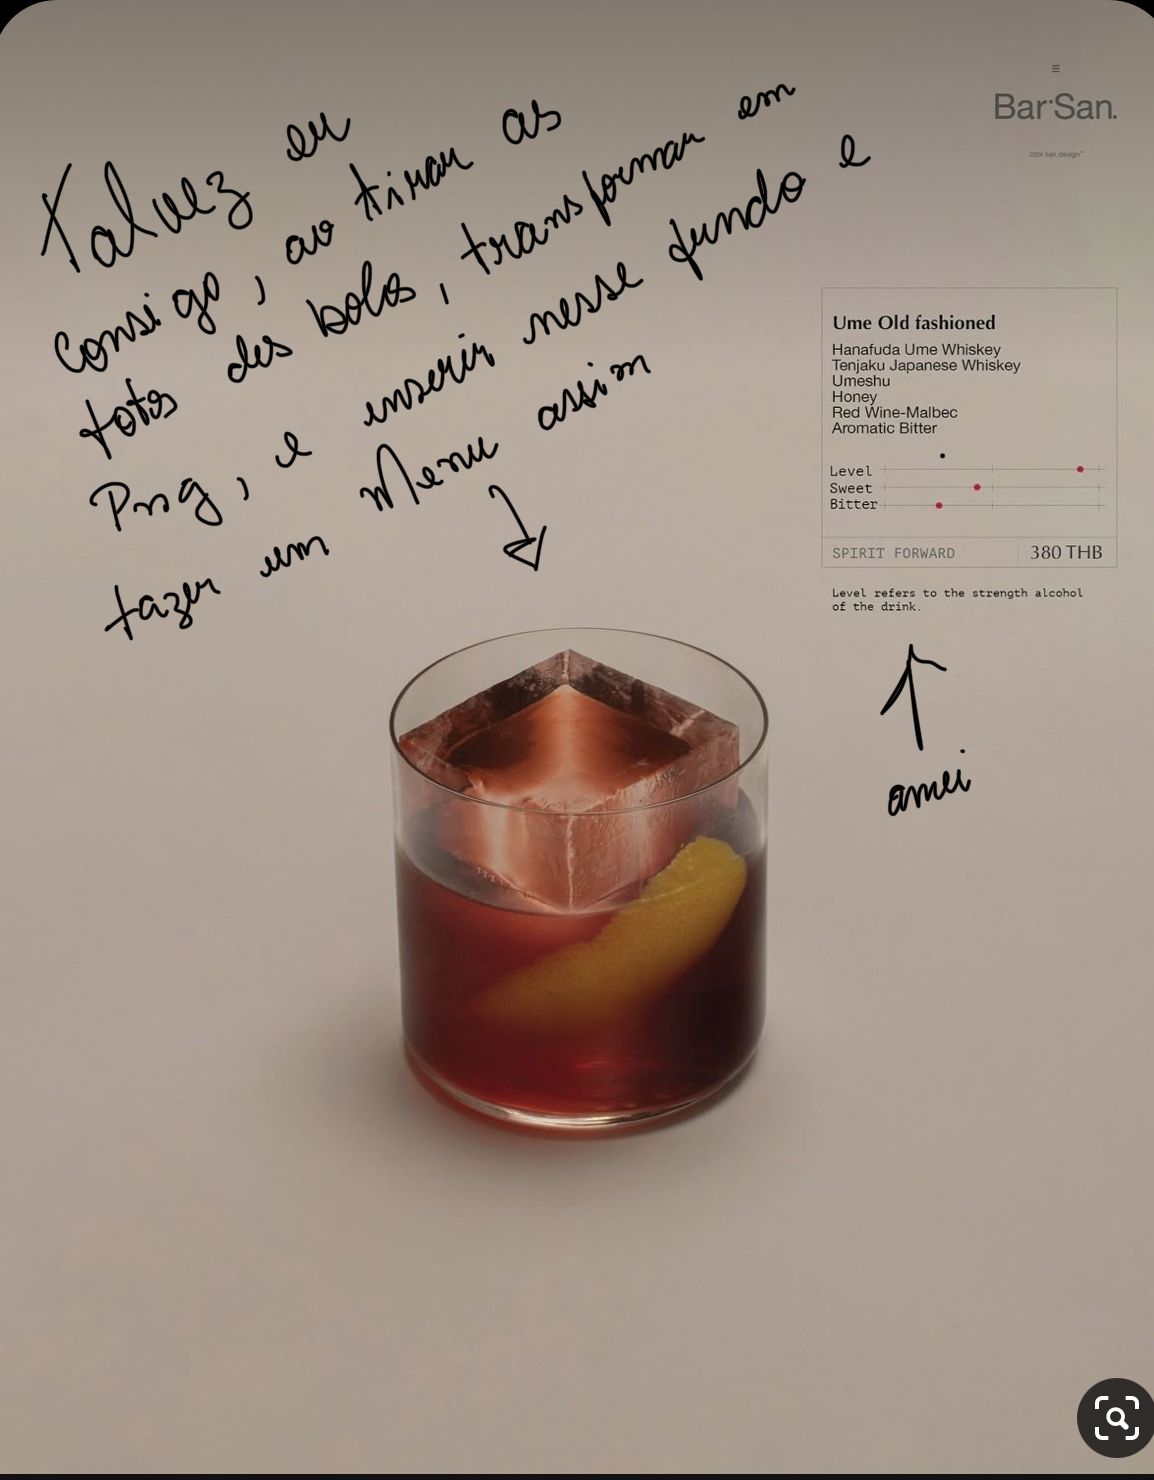 ☰
Bar·San.
2024 san.design°
Talvez eu
consigo, ao tirar as
fotos dos bolos, transformar em
Png, e inserir nesse fundo e
fazer um Menu assim
Ume Old fashioned
Hanafuda Ume Whiskey
Tenjaku Japanese Whiskey
Umeshu
Honey
Red Wine-Malbec
Aromatic Bitter
Level
Sweet
Bitter
SPIRIT FORWARD 380 THB
Level refers to the strength alcohol
of the drink.
amei